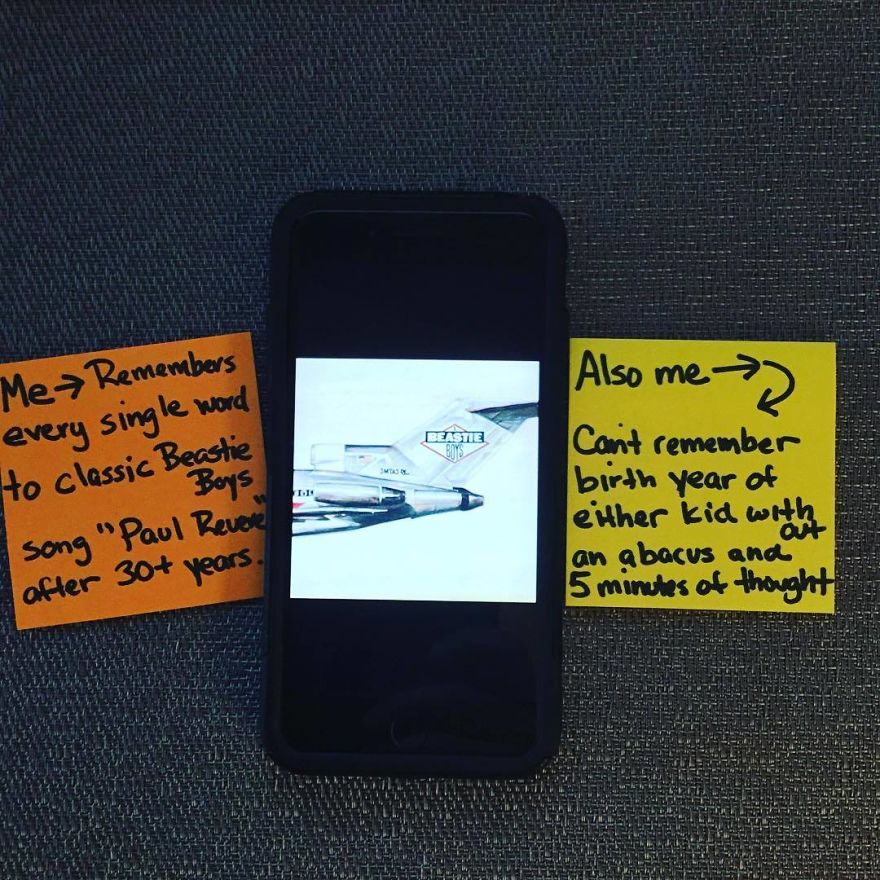 Me → Remembers
every single word
to classic Beastie
Boys
song "Paul Revere"
after 30+ years.
BEASTIE
BOYS
3MTA3
Also me →
Can't remember
birth year of
either kid with
out
an abacus and
5 minutes of thought